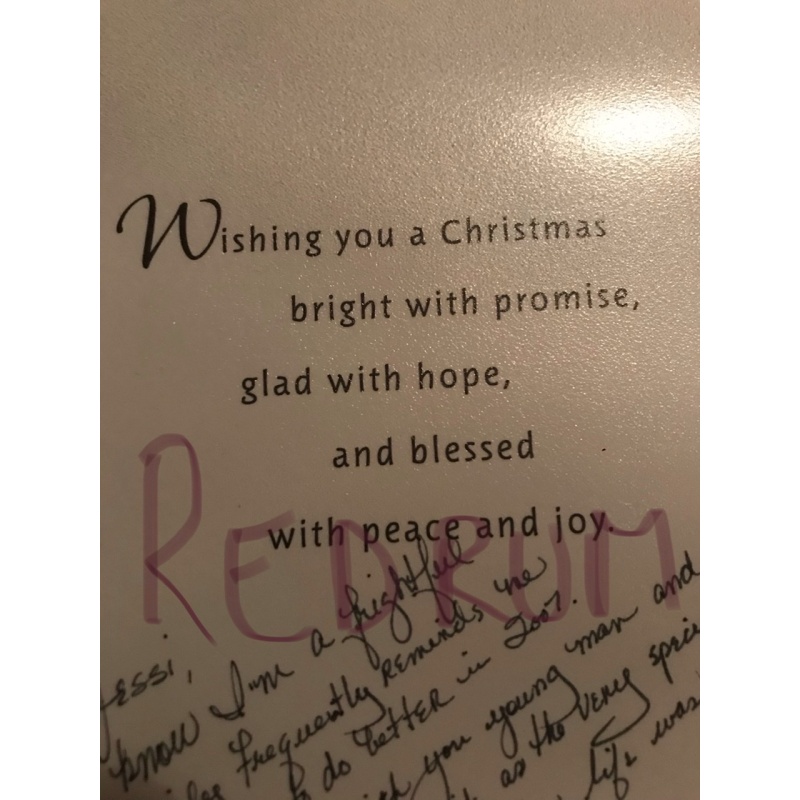 Wishing you a Christmas
bright with promise,
glad with hope,
and blessed
with peace and joy.
REDRUM
Jessi,
know I'm a frightful
frequently reminds me
to do better in 2007.
you young man and
as the very speci
life was